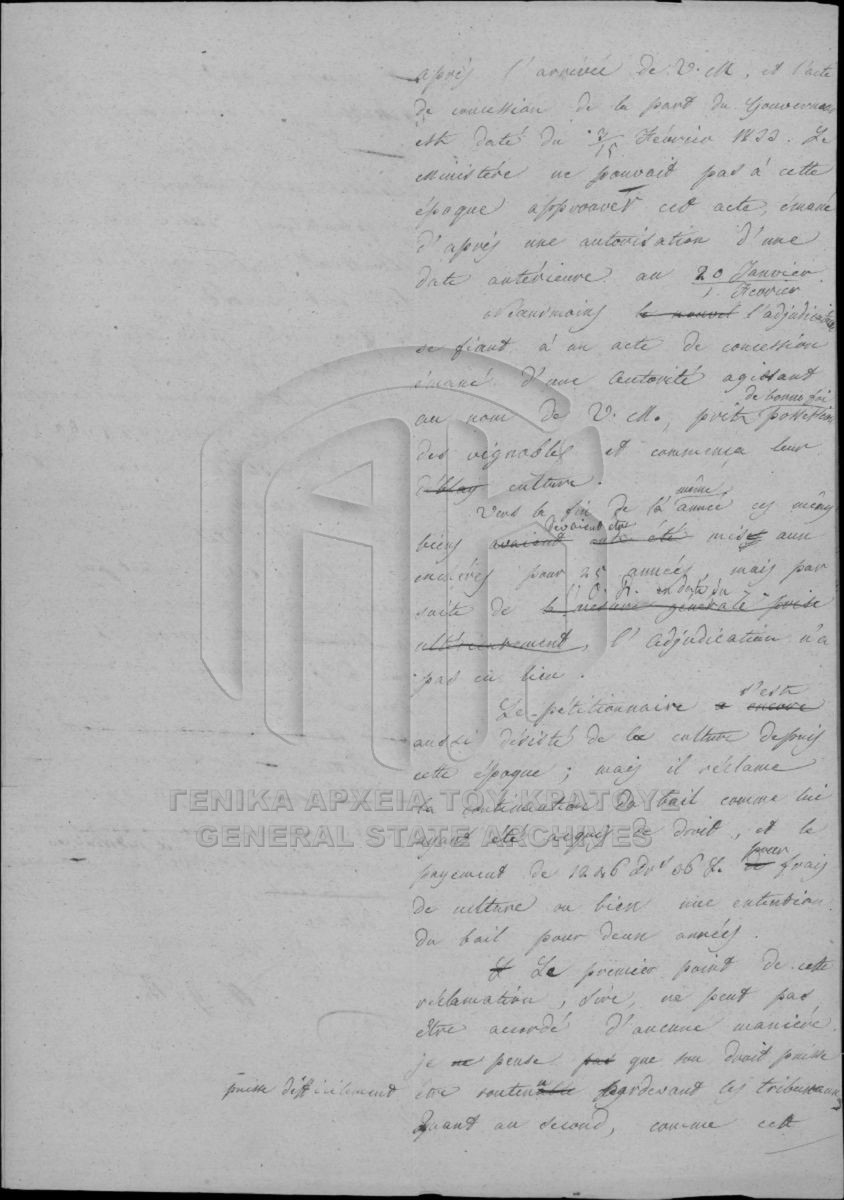 après l'arrivée de V. M. et l'acte
de concession de la part du Gouverneur
est daté du 3/15 Février 1833. Le
Ministère ne pouvait pas à cette
époque approuver cet acte, émané
d'après une autorisation d'une
date antérieure au 20 Janvier
1 Février
Néanmoins l'adjudicataire
se fiant à un acte de concession
émané d'une autorité agissant
de bonne foi
au nom de V. M., prit possession
des vignobles et commença leur
culture.
même
Vers la fin de la année ces mêmes
devaient être
biens avaient été mis aux
enchères pour 25 années, mais par
O. R. en date du
suite de la mesure générale prise
ultérieurement, l'adjudication n'a
pas eu lieu.
s'est
Le pétitionnaire a encore
aussi désisté de la culture depuis
cette époque; mais il réclame
la continuation du bail comme lui
ayant été acquis de droit, et le
pour
payement de 1246 Drs 06 L. de frais
de culture ou bien une extention
du bail pour deux années.
Et Le premier point de cette
réclamation, Sire, ne peut pas
être accordé d'aucune manière.
je ne pense pas que son droit puisse
puisse difficilement
être soutenu pardevant les tribunaux
Quant au second, comme cett
ΓΕΝΙΚΑ ΑΡΧΕΙΑ ΤΟΥ ΚΡΑΤΟΥΣ
GENERAL STATE ARCHIVES